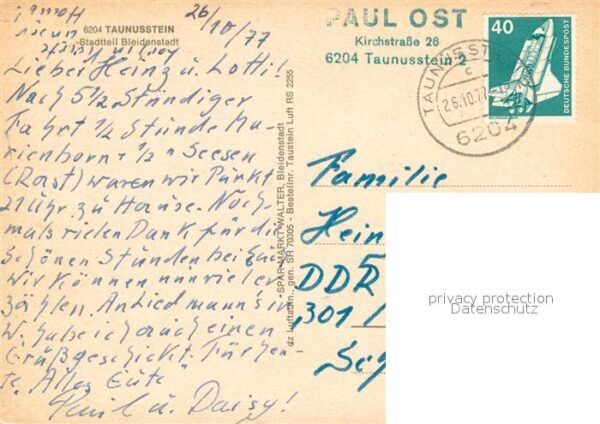 6204 TAUNUSSTEIN
Stadtteil Bleidenstadt
26/10/77
Lieber Heinz u. Lotti!
Nach 5 1/2 Stündiger
Fahrt 1/4 Stunde Ma-
rienborn + 1/2 " Seesen
(Rast) waren wir Pünkt
21 Uhr zu Hause. Noch-
mals vielen Dank für die
schönen Stunden bei Euc
wir können nun viel er
zählen. An Liedmann's in
W. habe ich auch einen
Grüß geschickt. Für heu-
te, Alles Gute
Paul u. Daisy!
SPAR-MARKT WALTER, Bleidenstadt
dz Luftaufn., gen. SH 70305 - Bestellnr. Taustein Luft RS 2255
PAUL OST
Kirchstraße 26
6204 Taunusstein 2
40
DEUTSCHE BUNDESPOST
TAUNUSST
c
26.10.77
6204
Familie
Hein
DDR
301
privacy protection
Datenschutz